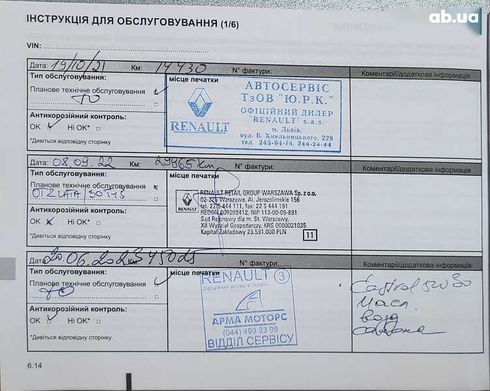 ab.ua
ІНСТРУКЦІЯ ДЛЯ ОБСЛУГОВУВАННЯ (1/6)
VIN:
Дата: 19/10/21 Км: 14430 N° фактури: Коментарі/додаткова інформація
Тип обслуговування:
місце печатки
Планове технічне обслуговування
ТО
Антикорозійний контроль:
OK Ні OK*
*Дивіться відповідну сторінку
RENAULT
АВТОСЕРВІС
ТзОВ "Ю.Р.К."
ОФІЦІЙНИЙ ДИЛЕР
"RENAULT" s.a.s.
м. Львів,
вул. Б. Хмельницького, 228
тел. 245-94-74, 244-24-44
Дата: 08.09.22 Км: 29965 km N° фактури: Коментарі/додаткова інформація
Тип обслуговування:
місце печатки
Планове технічне обслуговування
Антикорозійний контроль:
OK Ні OK*
*Дивіться відповідну сторінку
RENAULT RETAIL GROUP WARSZAWA Sp. z o.o.
02-305 Warszawa, Al. Jerozolimskie 156
REGON 009203412, NIP 113-00-09-891
Sąd Rejonowy dla m. St. Warszawy,
XII Wydział Gospodarczy, KRS 0000021035
Kapitał Zakładowy 23.591.000 PLN
11
N° фактури: Коментарі/додаткова інформація
Тип обслуговування:
місце печатки
Планове технічне обслуговування
ТО
Антикорозійний контроль:
OK Ні OK*
*Дивіться відповідну сторінку
RENAULT 3
Офіційний дилер в Україні
АРМА МОТОРС
(044) 499 33 99
ВІДДІЛ СЕРВІСУ
Castrol 5w30
Масл
возд
салона
6.14